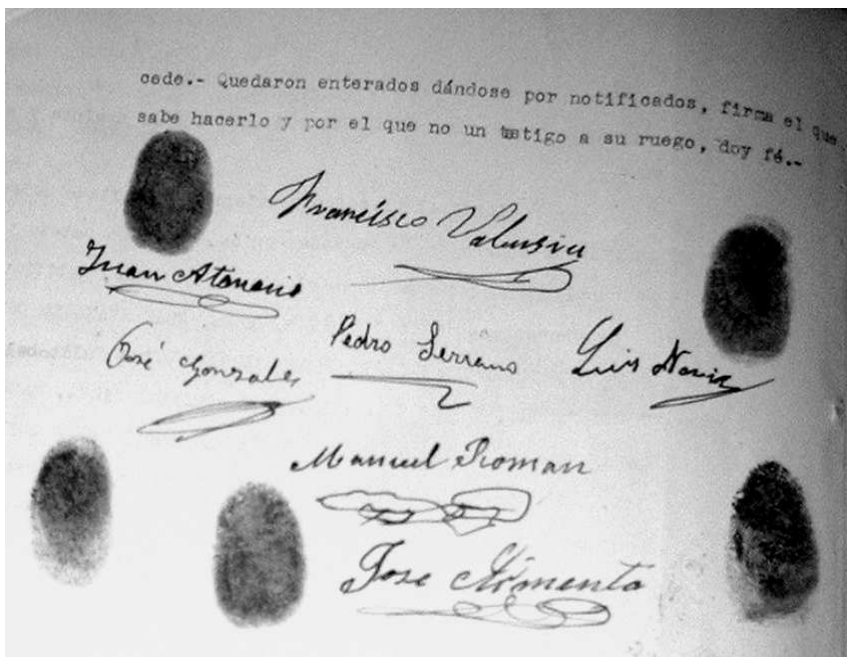 cede.- Quedaron enterados dándose por notificados, firma el que
sabe hacerlo y por el que no un testigo a su ruego, doy fé.-
Francisco
Juan Atanasio
José Gonzales
Pedro Serrano
Luis
Manuel Roman
Jose Armenta